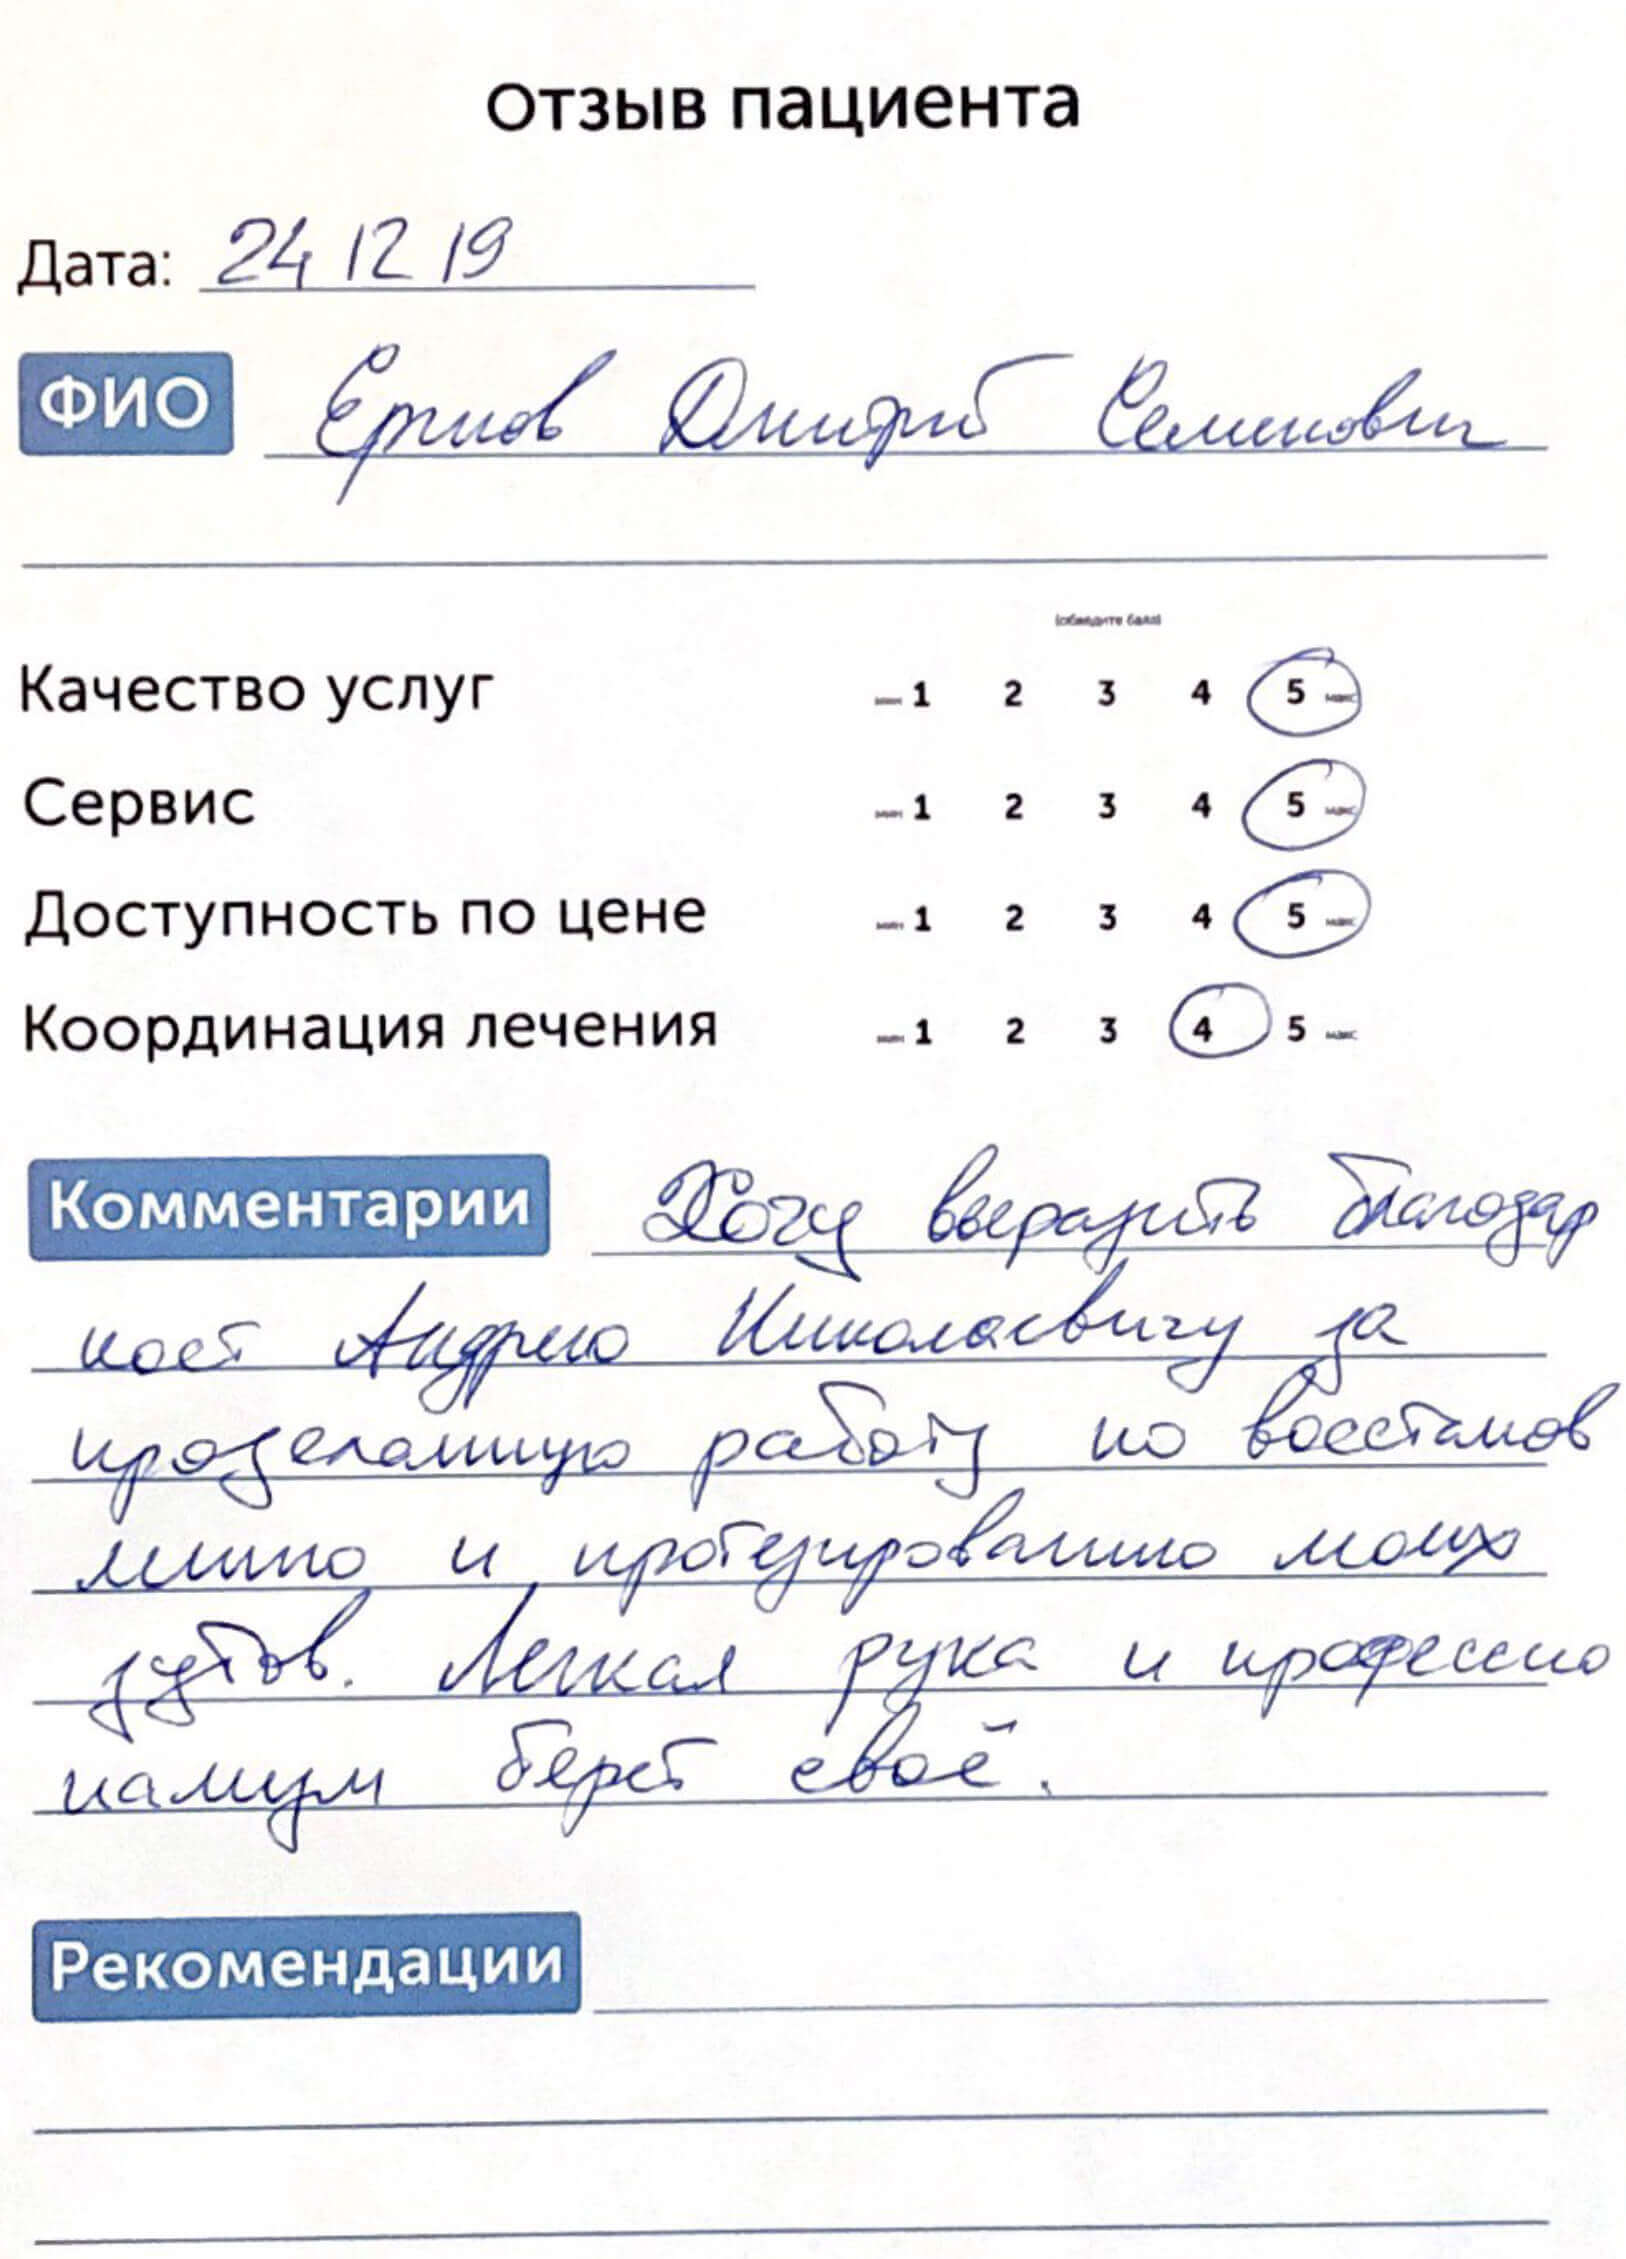 Отзыв пациента
Дата: 24 12 19
ФИО Дмитрий Семенович
(обведите балл)
Качество услуг мин 1 2 3 4 5 макс
Сервис мин 1 2 3 4 5 макс
Доступность по цене мин 1 2 3 4 5 макс
Координация лечения мин 1 2 3 4 5 макс
Комментарии Хочу выразить благодар
ност Андрею Николаевичу за
проделанную работу по восстанов
лению и протезированию моих
зубов. Легкая рука и професcио
нализм берет своё.
Рекомендации